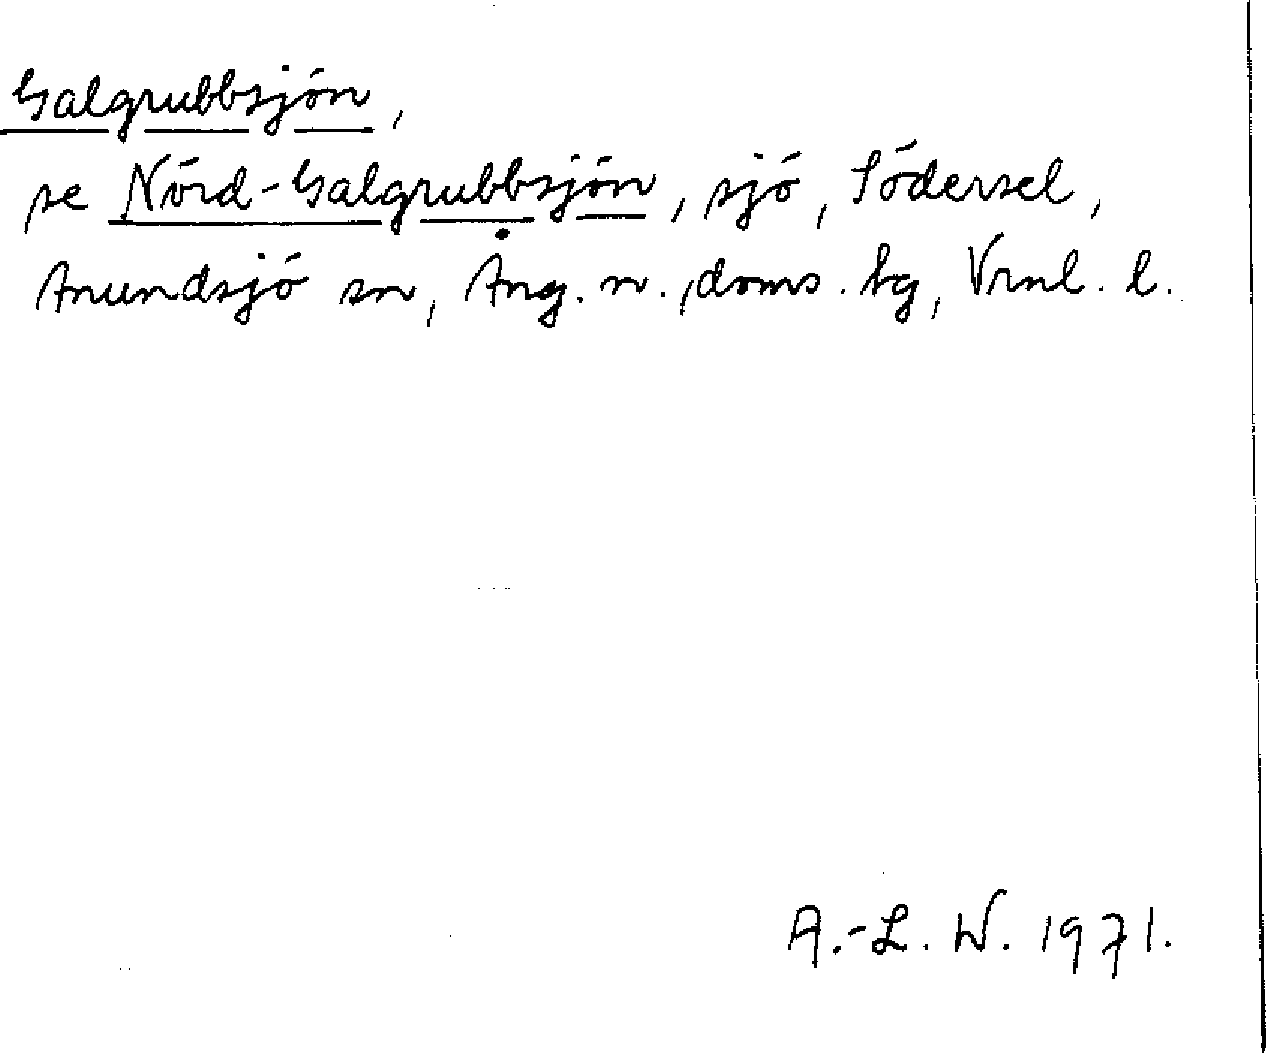 Galgrubbsjön,
se Nörd-Galgrubbsjön, sjö, Södersel,
Anundsjö sn, Ång. n., doms. tg, Vrnl. l.
A.-L. W. 1971.